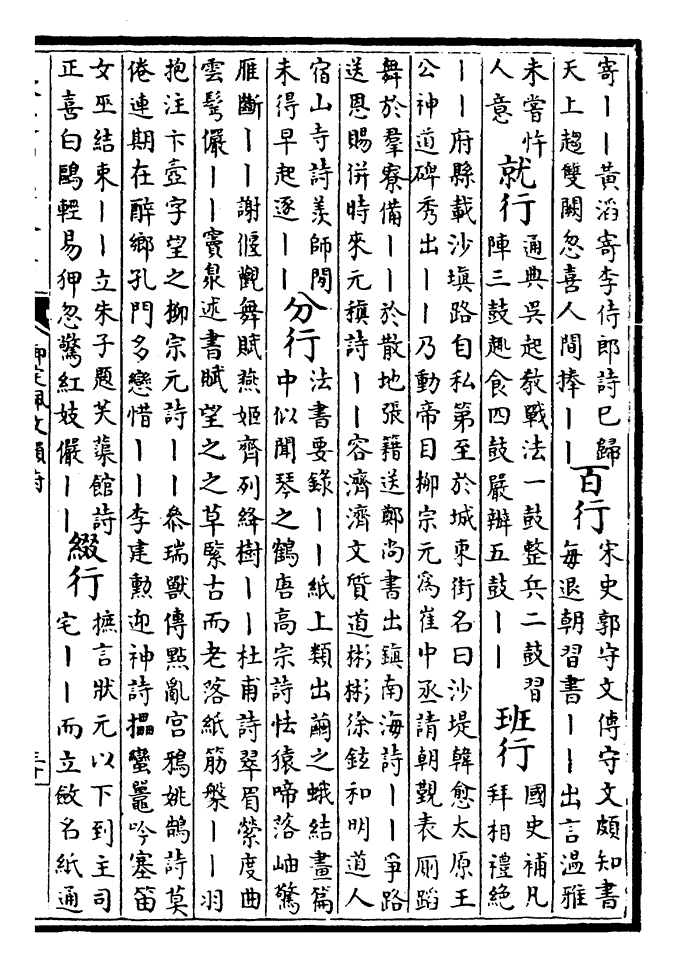 寄丨丨黃滔寄李侍郎詩已歸
天上趨雙闕忽喜人間捧丨丨
百行
宋史郭守文傳守文頗知書
每退朝習書丨丨出言温雅
未嘗忤
人意
就行
通典吳起敎戰法一鼓整兵二鼓習
陣三鼓趣食四鼓嚴辦五鼓丨丨
班行
國史補凡
拜相禮絶
丨丨府縣載沙塡路自私第至於城東街名曰沙堤韓愈太原王
公神道碑秀出丨丨乃動帝目柳宗元爲崔中丞請朝覲表厠蹈
舞於羣寮備丨丨於散地張籍送鄭尚書出鎮南海詩丨丨爭路
送恩賜併時來元稹詩丨丨容濟濟文質道彬彬徐鉉和明道人
宿山寺詩羨師閒
未得早起逐丨丨
分行
法書要錄丨丨紙上類出繭之蛾結畫篇
中似聞琴之鶴唐高宗詩怯猿啼落岫驚
雁斷丨丨謝偃觀舞賦燕姬齊列絳樹丨丨杜甫詩翠眉縈度曲
雲鬢儼丨丨竇臮述書賦望之之草緊古而老落紙筋盤丨丨羽
抱注卞壼字望之柳宗元詩丨丨叅瑞獸傳點亂宮鴉姚鵠詩莫
倦連期在醉鄉孔門多戀惜丨丨李建勲迎神詩攂蠻鼉吟塞笛
女巫結束丨丨立朱子題芙蕖館詩
正喜白鷗輕易狎忽驚紅妓儼丨丨
綴行
摭言狀元以下到主司
宅丨丨而立斂名紙通